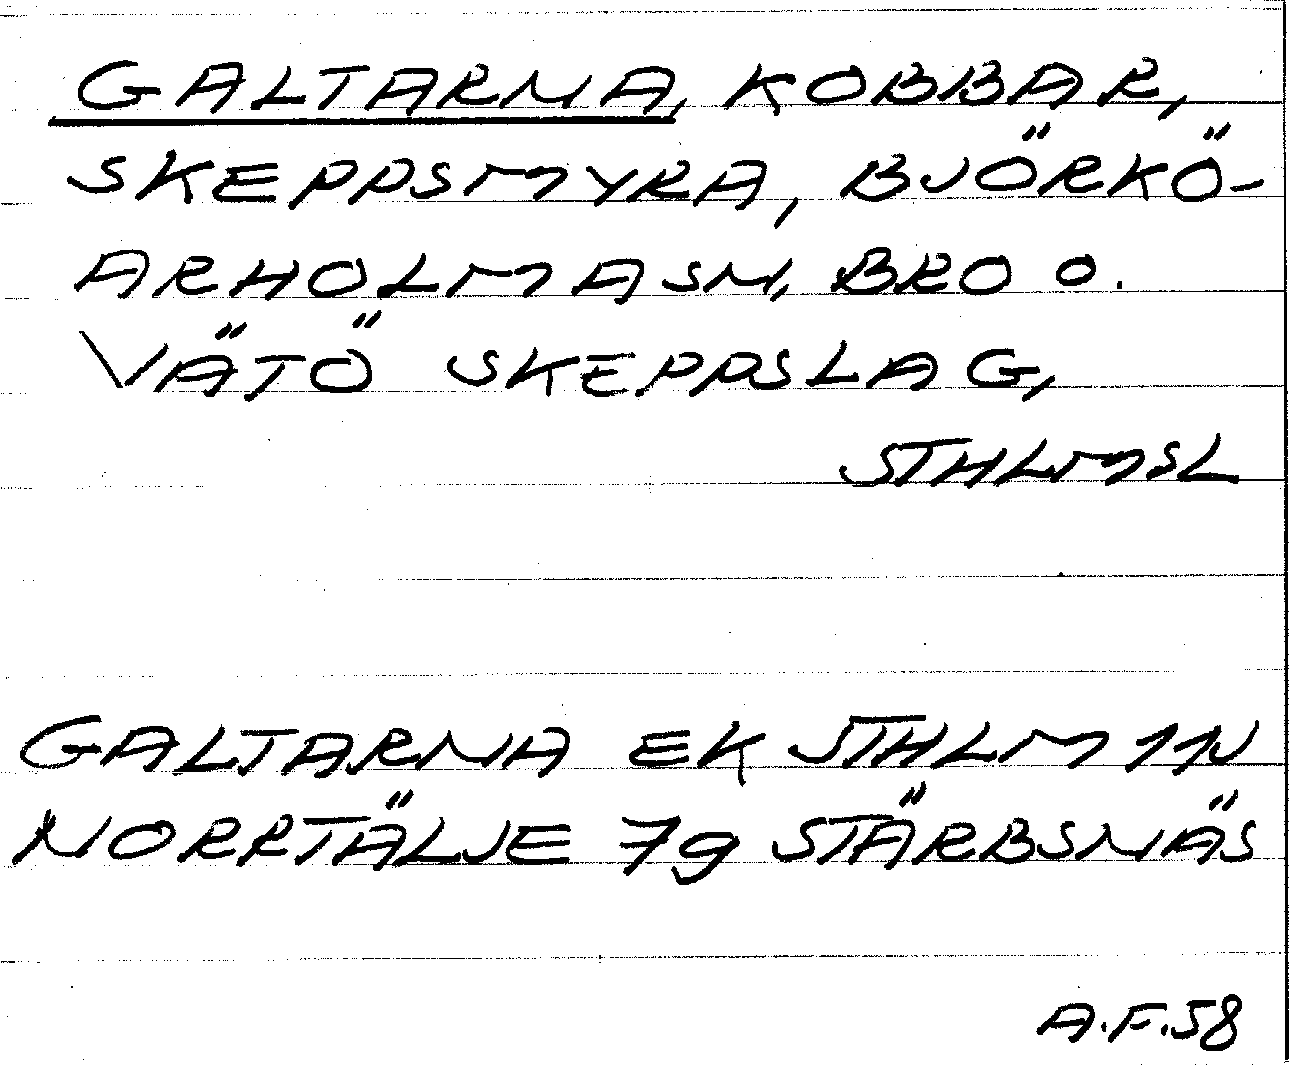 GALTARNA, KOBBAR,
SKEPPSMYRA, BJÖRKÖ-
ARHOLMA SN, BRO O.
VÄTÖ SKEPPSLAG,
STHLMSL
GALTARNA EK STHLM 11V
NORRTÄLJE 7g STÄRBSNÄS
A.F.58